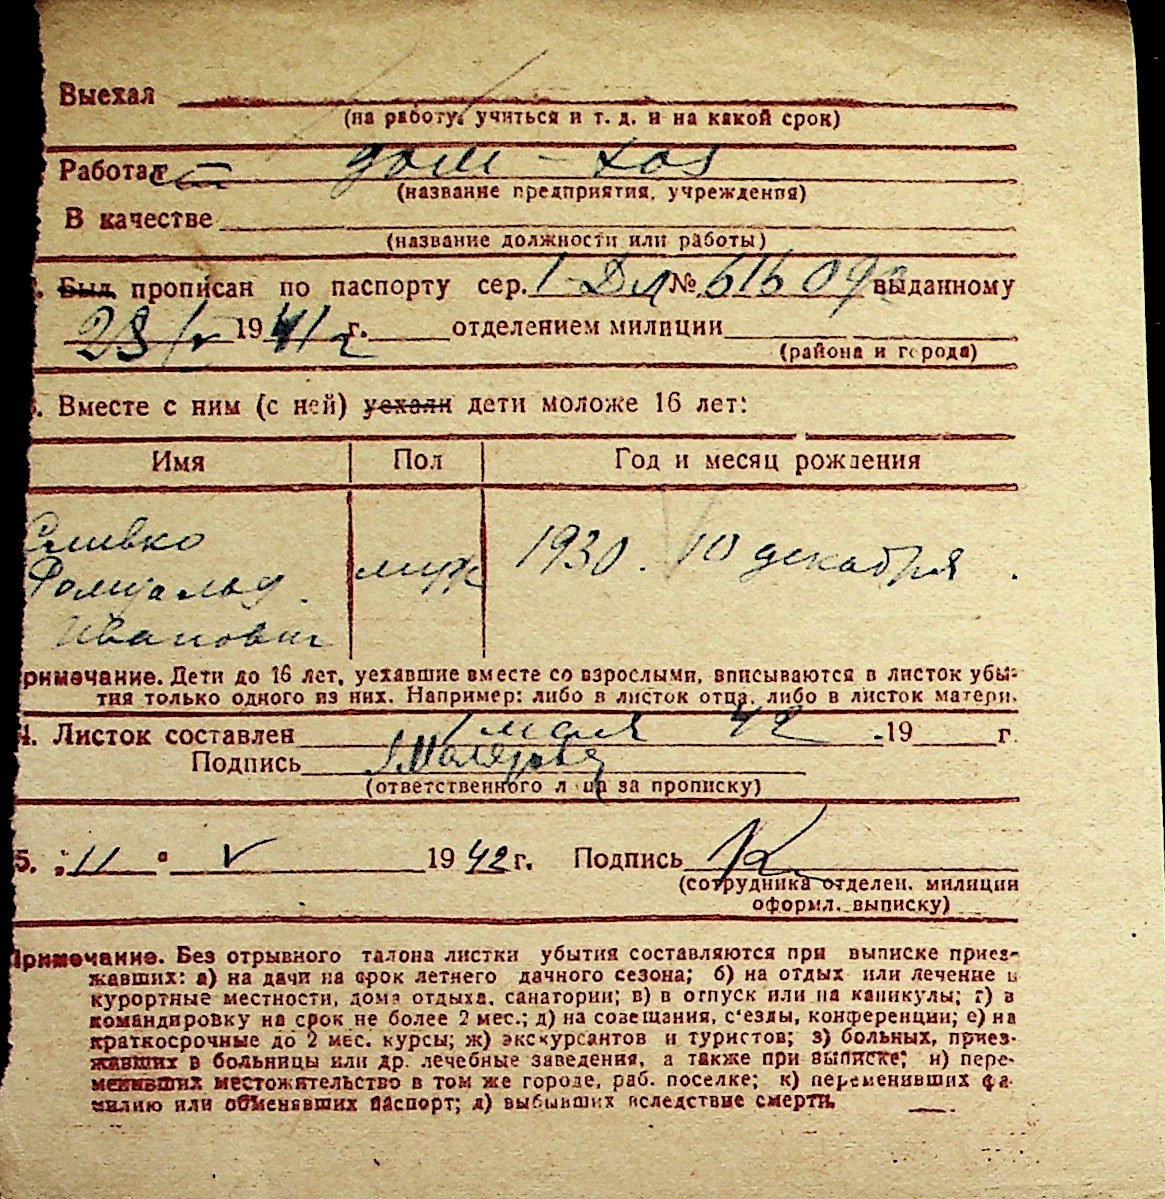 Выехал
(на работу, учиться и т. д. и на какой срок)
Работает дом-хоз
(название предприятия, учреждения)
В качестве
(название должности или работы)
Был прописан по паспорту сер. 1-Дл № 616 09 выданному
23/V 1941 г. отделением милиции
(района и города)
3. Вместе с ним (с ней) уехали дети моложе 16 лет:
Имя Пол Год и месяц рождения
Сливко
Ромуальд муж 1930. 10 декабря.
Иванович
Примечание. Дети до 16 лет, уехавшие вместе со взрослыми, вписываются в листок убы-
тия только одного из них. Например: либо в листок отца, либо в листок матери.
4. Листок составлен 1 мая 42 19 г
Подпись
(ответственного лица за прописку)
5. „11“ V 1942 г. Подпись
(сотрудника отделен. милиции
оформл. выписку)
Примечание. Без отрывного талона листки убытия составляются при выписке приез-
жавших: а) на дачи на срок летнего дачного сезона; б) на отдых или лечение в
курортные местности, дома отдыха, санатории; в) в отпуск или на каникулы; г) в
командировку на срок не более 2 мес.; д) на совещания, с'езды, конференции; е) на
краткосрочные до 2 мес. курсы; ж) экскурсантов и туристов; з) больных, приез-
жавших в больницы или др. лечебные заведения, а также при выписке; и) пере-
менивших местожительство в том же городе, раб. поселке; к) переменивших фа-
милию или обменявших паспорт; л) выбывших вследствие смерти.